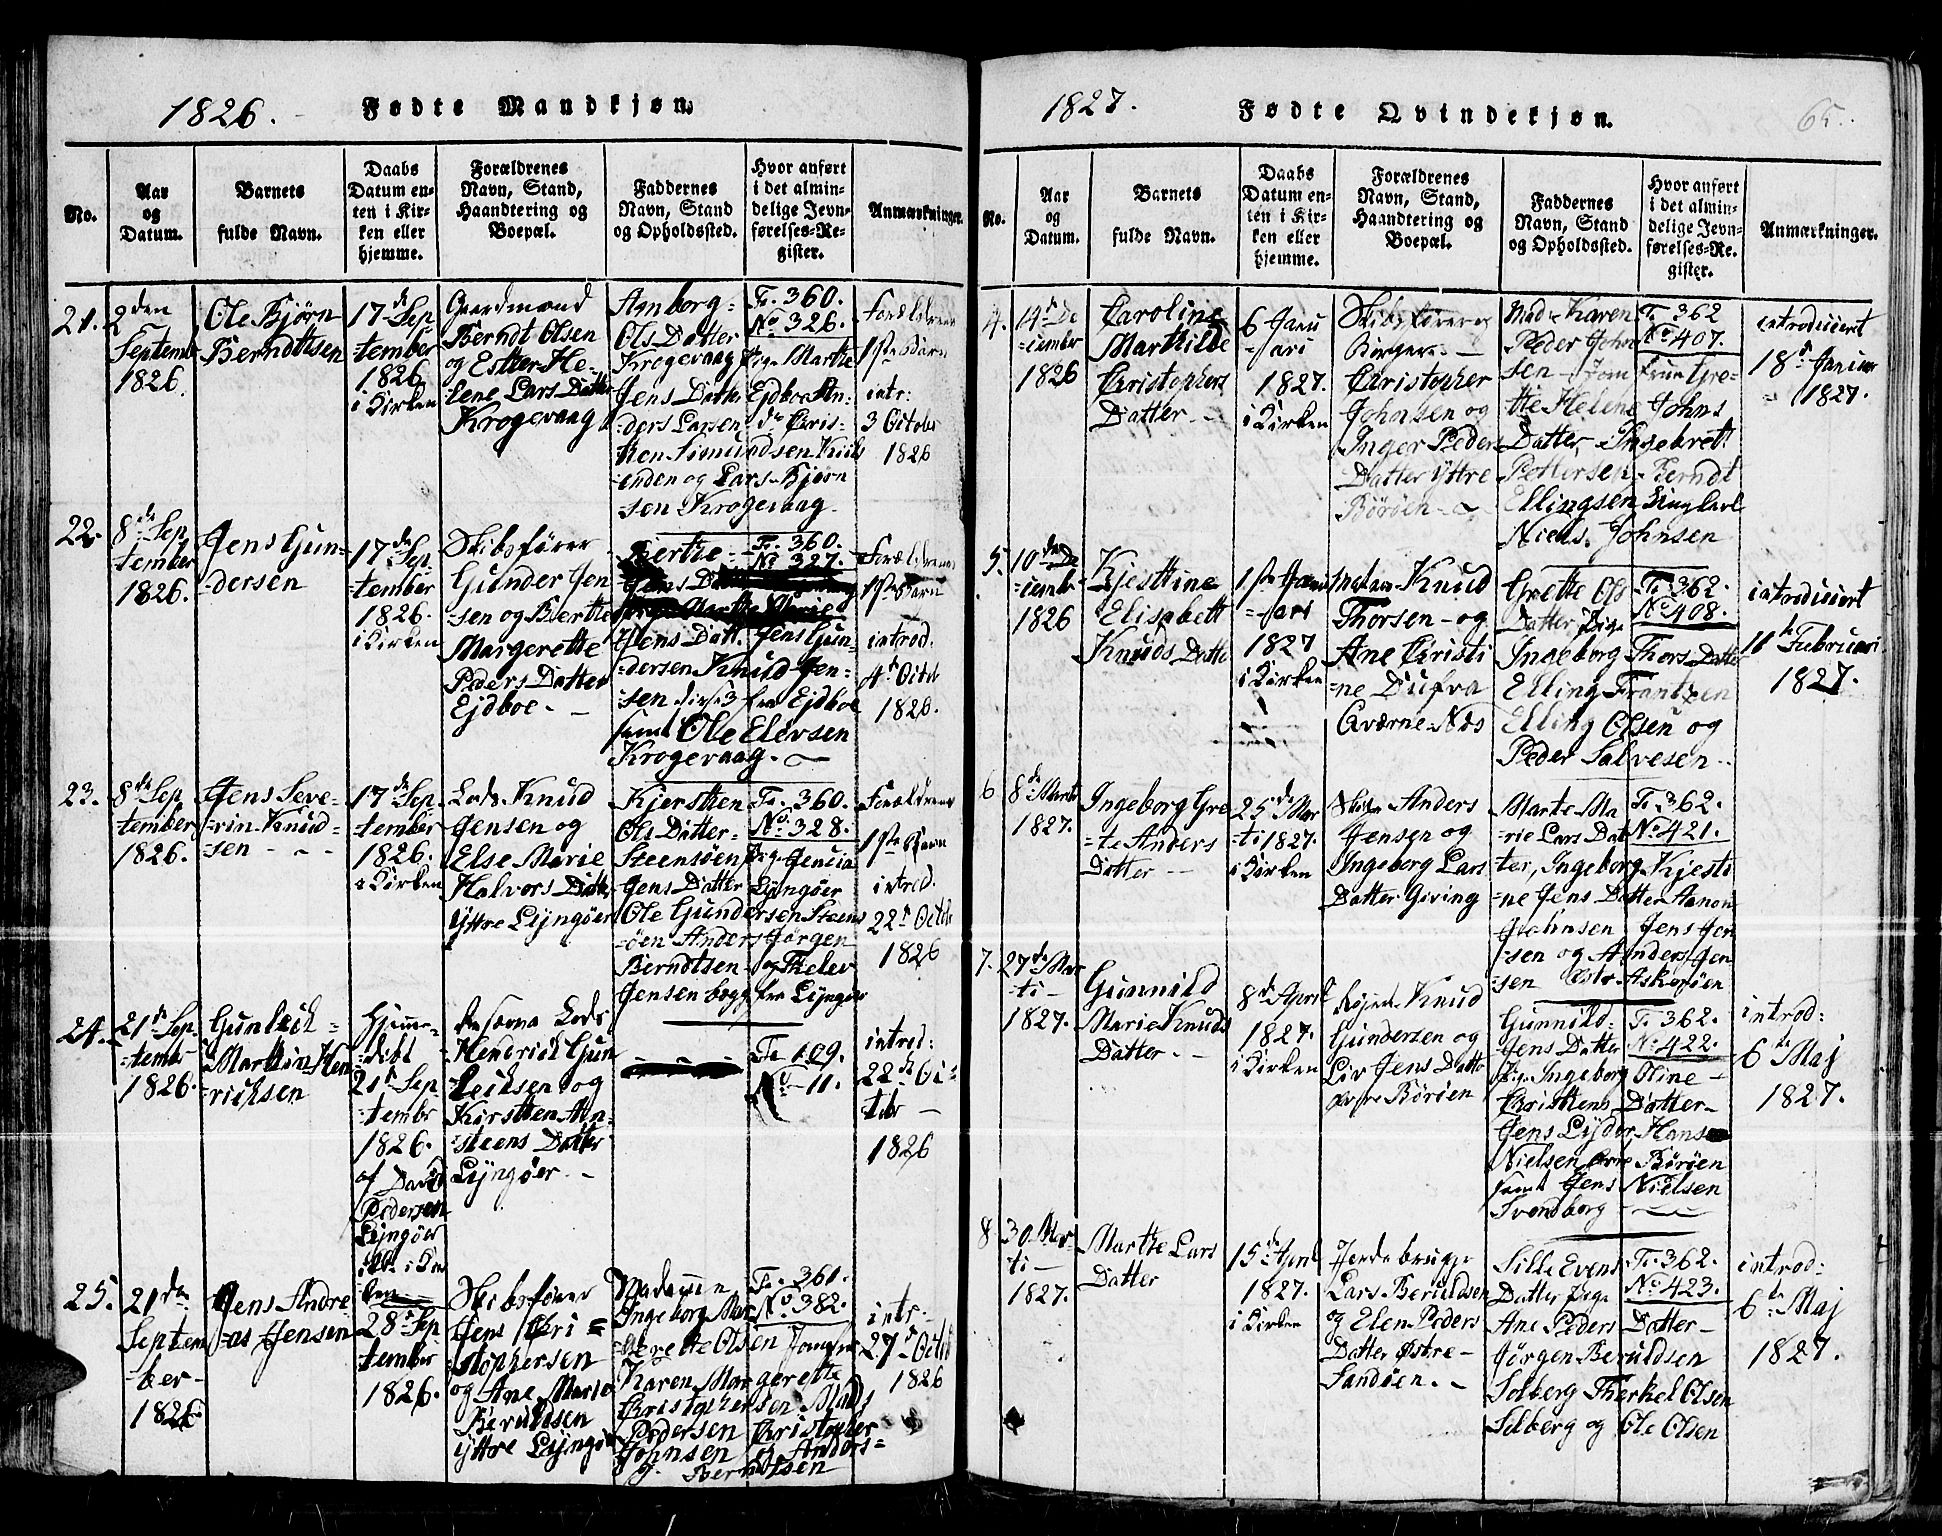 1826.
Fødte Mandkjøn.
No.
Aar
og
Datum.
Barnets
fulde Navn.
Daabs
Datum en-
ten i Kir-
ken eller
hjemme.
Forældrenes
Navn, Stand,
Haandtering og
Boepæl.
Faddernes
Navn, Stand
og Opholdssted.
Hvor anført
i det almin-
delige Jevn-
førelses-Re-
gister.
Anmærkninger.
21.
2den
Septemb
1826.
Ole Bjørn
Berndtsen
17de Sep
-tember
1826
i Kirken
Gaardmand
Berndt Olsen
og Estter He-
lene Lars Datter
Krogevaag
Asnborg-
Ols Datter
Krogevaag Pige Marthe
Jens Datter Ejdboe An-
-ders Larsen do Chris-
-ten Simundsen Kiils
-enden og Lars Bjørn
sen Krogevaag.
Fo. 360.
No. 326.
Forældrenes
1ste Barn
intr:
3 October
1826
22.
8de Sep
tember
1826.
Jens Gun-
-dersen
17de Sep
-tember
1826.
i Kirken
Skibsfører
Gunder Jen
sen og Berthe
Margerette
Peders Datter
Ejdboe. -
Berthe
Jens Datt. Jens Gun-
-dersen Knud Jen-
-sen disse 3 fra Ejdboe
samt Ole Elevsen
Krogevaag. -
Fo. 360.
No. 327.
Forældrenes
1ste Barn
introd.
4de Octob
1826.
23.
8de Sep
tember
1826.
Jens Seve-
-rin Knud-
-sen - -
17de Sep
-tember
1826.
i Kirken
Lods Knud
Jensen og
Else Marie
Halvors Datter
Yttre Lyngøer
Kjersten
Ols Datter-
Steensøen Pige Jencia
Jens Datter Lyngøer
Ole Gundersen Steens
-øen Anders Jørgen
Berndtsen og Thelev
Jensen begge fra Lyngøer
Fo. 360.
No. 328.
Forældrenes
1ste Barn
introd.
22de Octob
1826
24.
21de Sep
-tembr
1826.
Gunleik
Marthin Hen
-richsen
Hjemme-
-døbt
21de Sep
-tembr
1826.
af David
Pedersen
Lyngøer
Lods
Hendrick Gun
leiksen og
Kirstten Asn-
-steens Datter
Lyngøer. -
Fo. 109.
No. 11.
introd:
22de Oc-
tobr -
1826
25.
21de
Septem
-ber-
1826
Jens Andre
-as Jensen
28de Sep
-tember
1826.
Skibsfører
Jens Chri=
stophersen
og Ane Marie
Beruldsen
Yttre Lyngør
Madamme
Ingeborg Mar
-gerette Olsen Jomfru
Karen Margerette
Christophersen Mads
Pedersen Christopher
Johnsen og Anders-
J. Berndtsen
Fo. 361.
No. 382.
intr:
27de Octob
1826
1827.
Fødte Qvindekjøn.
65.
No.
Aar
og
Datum.
Barnets
fulde Navn.
Daabs
Datum en-
ten i Kir-
ken eller
hjemme.
Forældrenes
Navn, Stand,
Haandtering og
Boepæl.
Faddernes
Navn, Stand
og Opholdssted.
Hvor anført
i det almin-
delige Jevn-
førelses-Re-
gister.
Anmærkninger.
4.
14de De
-cember
1826
Caroline
Marthilde
Christophers
Datter - -
6 Janu
-ari
1827.
i Kirken
Skibsfører og
Borger -
Christopher
Johnsen og
Inger Peders
Datter Yttre
Børøen - -
Mad. Karen
Peder John
sen - Jomfrue Gre-
tte Helene Johns
Datter, Ingebret
Pettersen Berndt
Ellingsen Ungkarl
Niels Johnsen
Fo. 362
No. 407.
introduceret
18de Januar
1827.
5.
10de De
-cemb
1826
Kjesttine
Elisabett
Knuds Datte
1ste Janu
-ari
1827
i Kirken
Knud
Thorsen - og
Ane Christi
-ne Dufva
Qværne-Næs
Grette Ols
Datter Pige
Ingeborg Thors Datter
Elling Frantzen
Elling Olsen og
Peder Salvesen
Fo. 362.
No. 408.
introduceret
11te Februari
1827.
6
8de Marti
1827.
Ingeborg Gre
-te Anders
Datter -
25de Mar
-ti 1827.
i Kirken
Anders
Jensen og
Ingeborg Lars
Datter Giving
Marte Ma
-rie Lars Dat
ter, Ingeborg Kjesti
-ne Jens Datter Aanon
Johnsen Jens Jen
-sen og Anders Jen
sen Østr. Askerøen
Fo. 362.
No. 421.
7.
27de Mar
-ti-
1827.
Gunnild
Marie Knuds
Datter - -
8de April
1827.
i Kirken
Knud
Gundersen og
Liv Jens Datter
øvre Børøen
Gunnild-
Jens Datter
Pige Ingeborg Oline-
Christtens Datter-
Jens Lyder Hans
Nielsen øvre Børøen
samt Jens Nielsen
Svendborg
Fo. 362.
No. 422.
introd:
6te Maj
1827.
8
30 Mar-
ti-
1827.
Marthe Lars
Datter
15de April
1827.
i Kirken
Jordebruger
Lars Beruldsen
og Elen Peders
Datter Østre-
Sandøen. -
Sille Evens
Datter Pige
Ane Peders Datter-
Jørgen Beruldsen
Solberg Therkel Olsen
Solberg og Ole Olsen
Fo. 362.
No. 423.
introd:
6te Maj
1827.